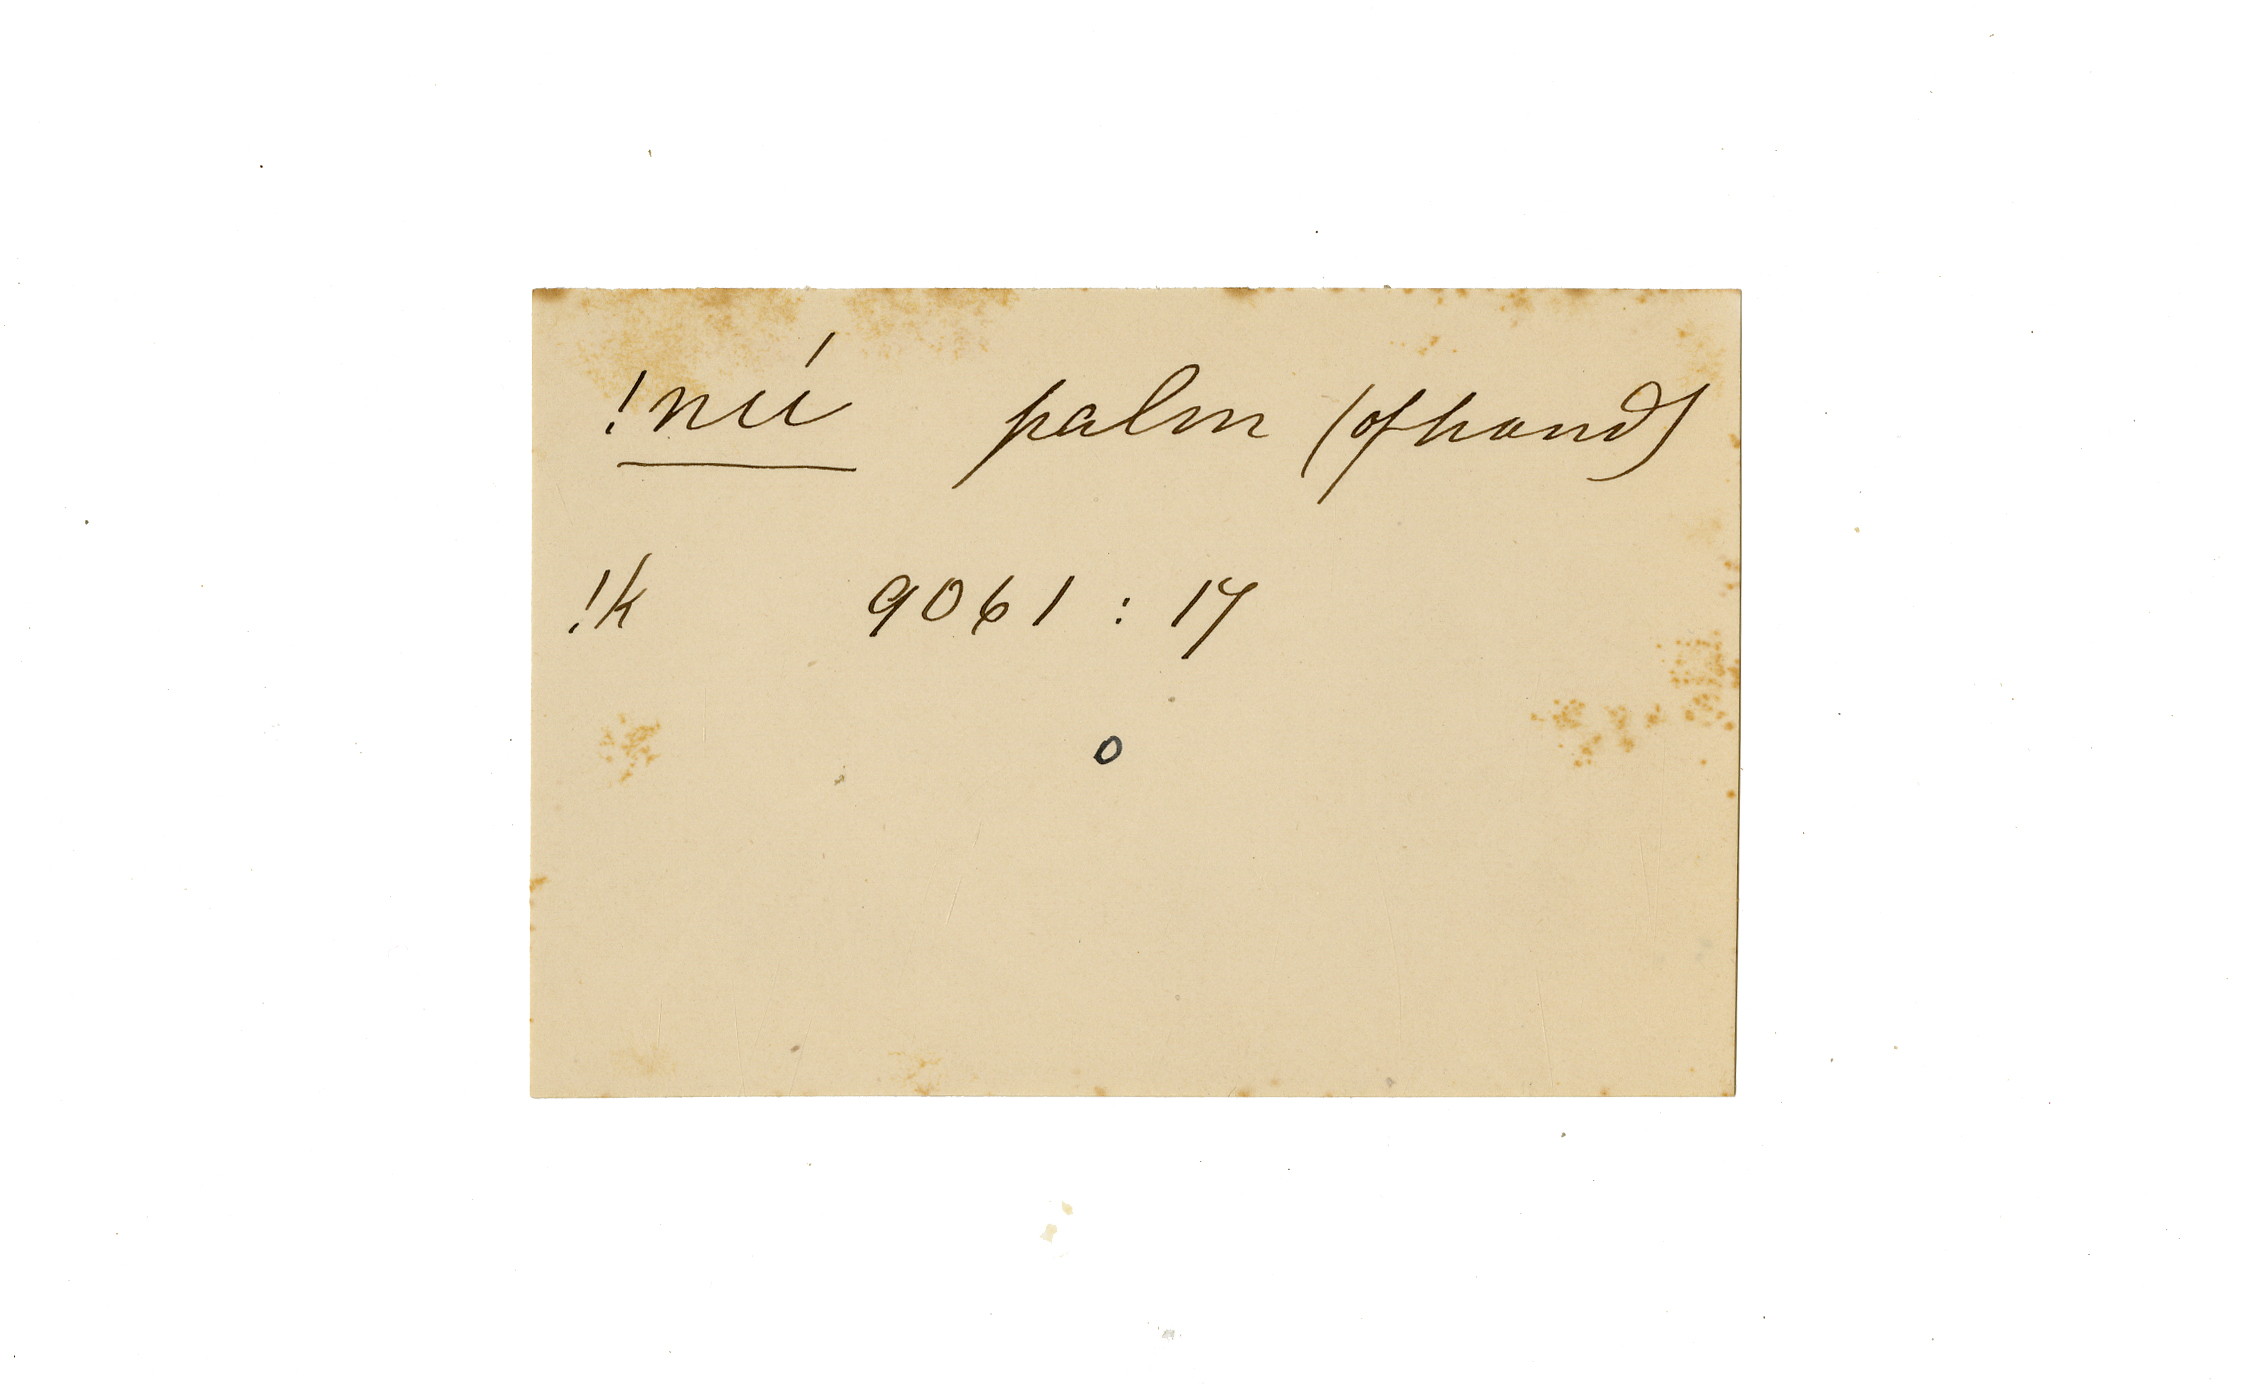 !nuí palm (of hand)
!k 9061 : 17
o